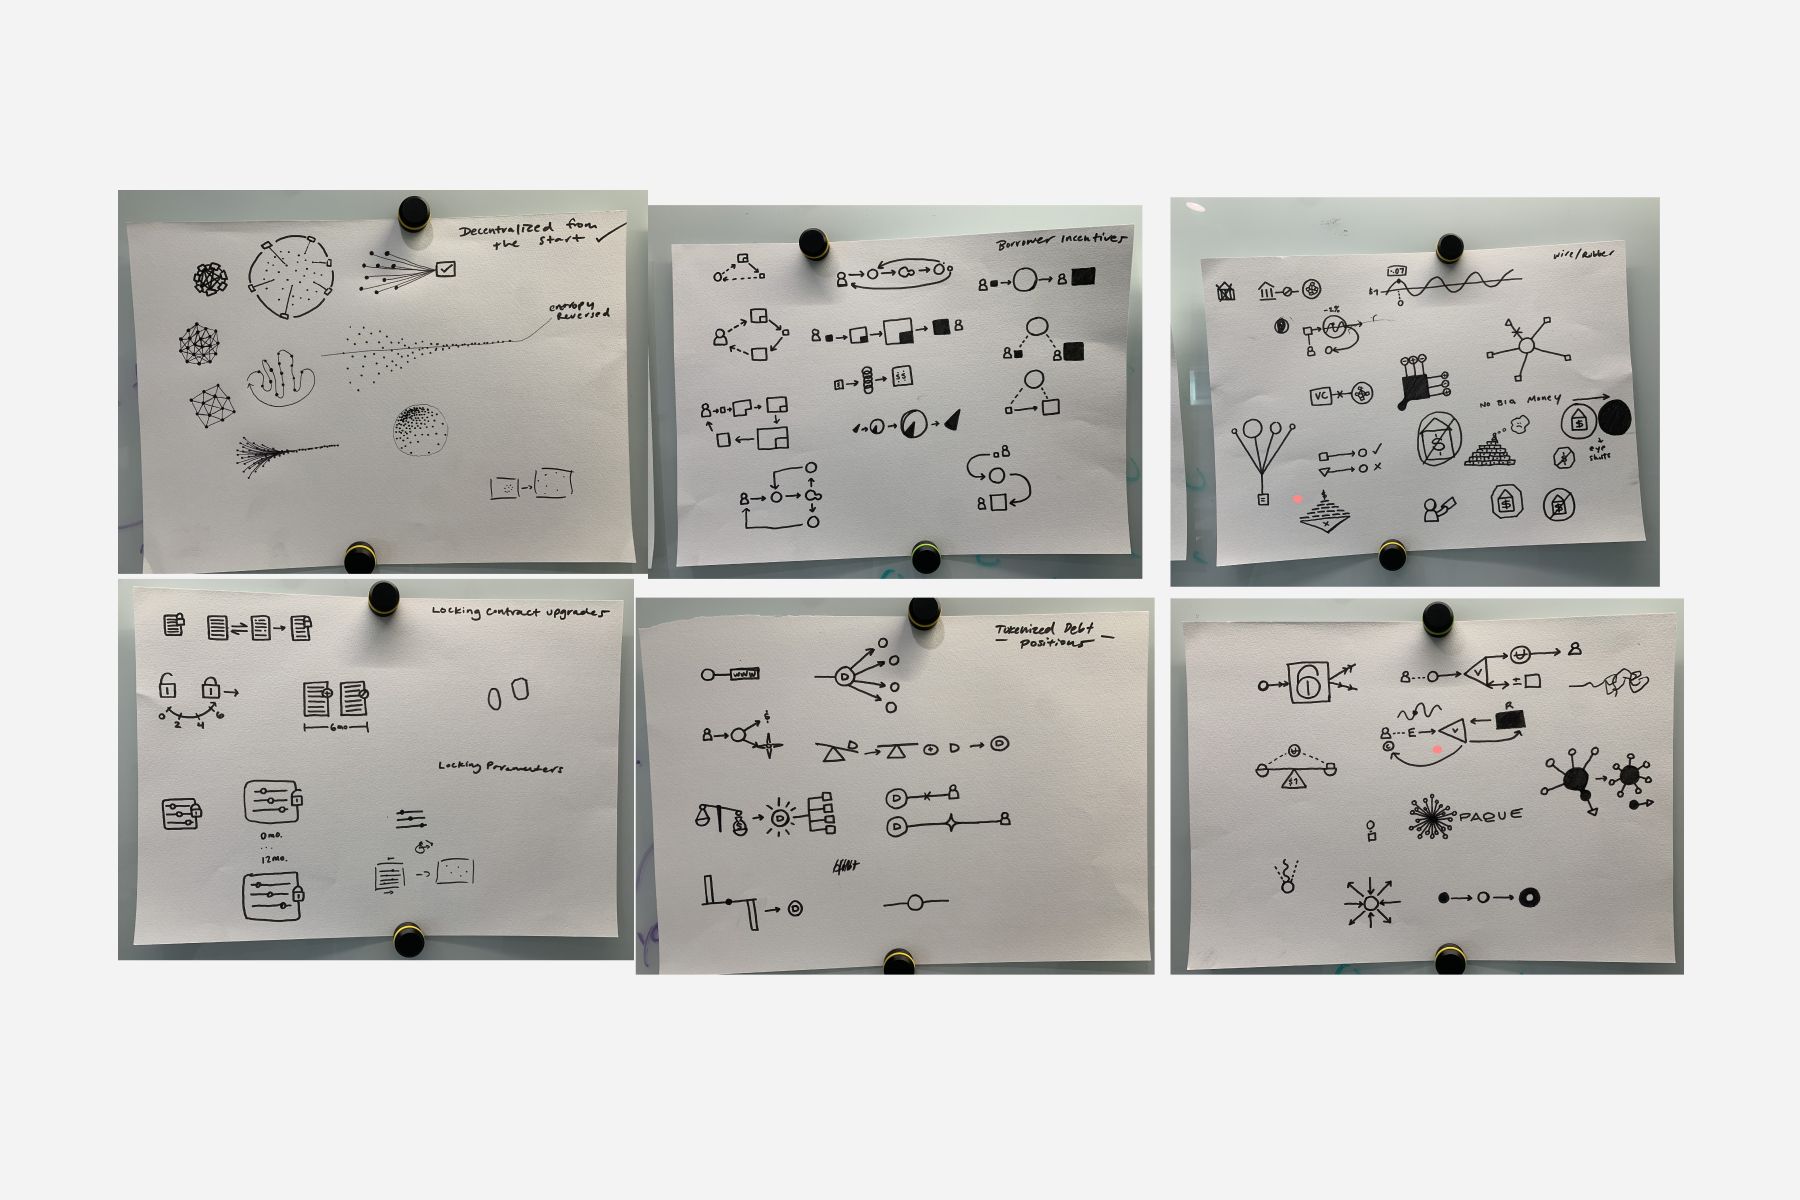 Decentralized from
the start
entropy
reversed
Borrower Incentives
$$
wire/rubber
-.07
$1
-2%
VC
NO BIG MONEY
$
$
+
eye
shuts
$
$
$
$
Locking contract upgrades
0 2 4 6
6mo
Locking Parameters
0mo.
...
12mo.
Tokenized Debt
Positions
WWW
D
$
D
D
D
D
D
$
D
D
D
V
±
R
E
V
C
$1
PAQUE